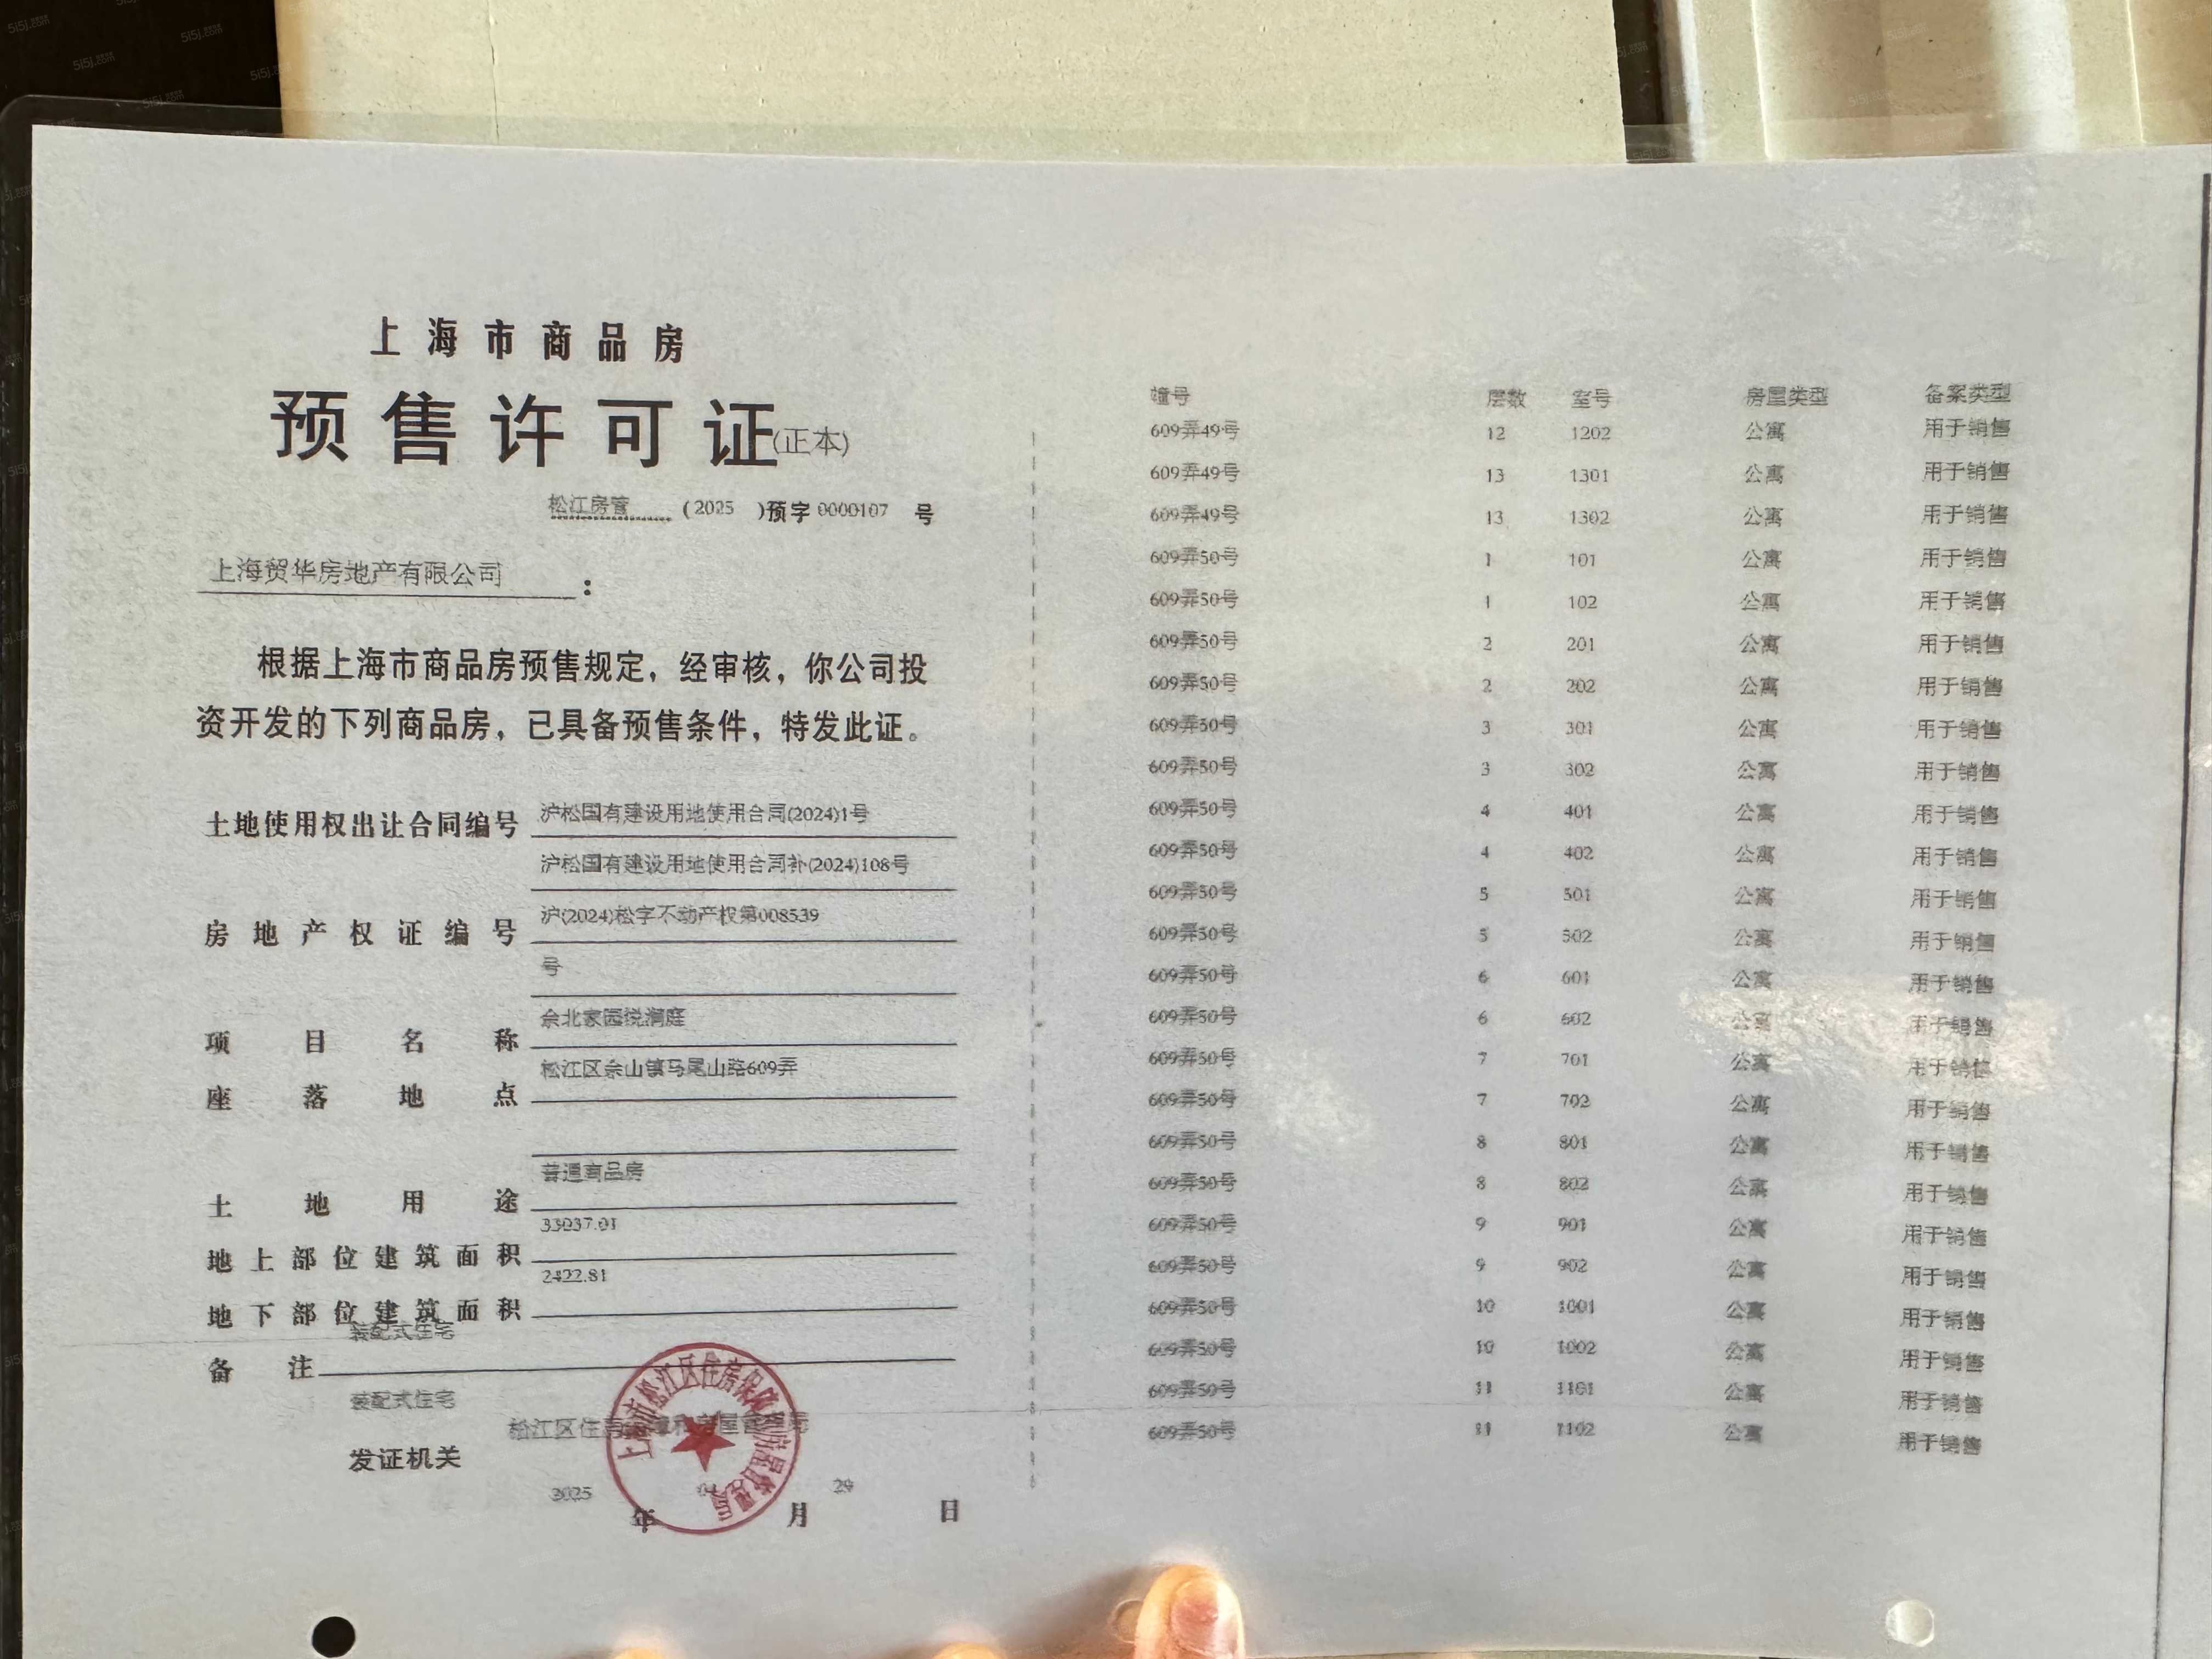 上海市商品房
预售许可证(正本)
松江房管 (2025 )预字 0000107 号
上海贸华房地产有限公司：
根据上海市商品房预售规定，经审核，你公司投
资开发的下列商品房，已具备预售条件，特发此证。
土地使用权出让合同编号 沪松国有建设用地使用合同(2024)1号
沪松国有建设用地使用合同补(2024)108号
房地产权证编号 沪(2024)松字不动产权第008539
号
项目名称 佘北家园悦澜庭
座落地点 松江区佘山镇马尾山路609弄
土地用途 普通商品房
地上部位建筑面积 33037.01
地下部位建筑面积 2422.81
装配式住宅
备注
装配式住宅
发证机关 松江区住房保障和房屋管理局
2025 年 月 29 日
上海市松江区住房保障和房屋管理局
幢号 层数 室号 房屋类型 备案类型
609弄49号 12 1202 公寓 用于销售
609弄49号 13 1301 公寓 用于销售
609弄49号 13 1302 公寓 用于销售
609弄50号 1 101 公寓 用于销售
609弄50号 1 102 公寓 用于销售
609弄50号 2 201 公寓 用于销售
609弄50号 2 202 公寓 用于销售
609弄50号 3 301 公寓 用于销售
609弄50号 3 302 公寓 用于销售
609弄50号 4 401 公寓 用于销售
609弄50号 4 402 公寓 用于销售
609弄50号 5 501 公寓 用于销售
609弄50号 5 502 公寓 用于销售
609弄50号 6 601 公寓 用于销售
609弄50号 6 602 公寓 用于销售
609弄50号 7 701 公寓 用于销售
609弄50号 7 702 公寓 用于销售
609弄50号 8 801 公寓 用于销售
609弄50号 8 802 公寓 用于销售
609弄50号 9 901 公寓 用于销售
609弄50号 9 902 公寓 用于销售
609弄50号 10 1001 公寓 用于销售
609弄50号 10 1002 公寓 用于销售
609弄50号 11 1101 公寓 用于销售
609弄50号 11 1102 公寓 用于销售